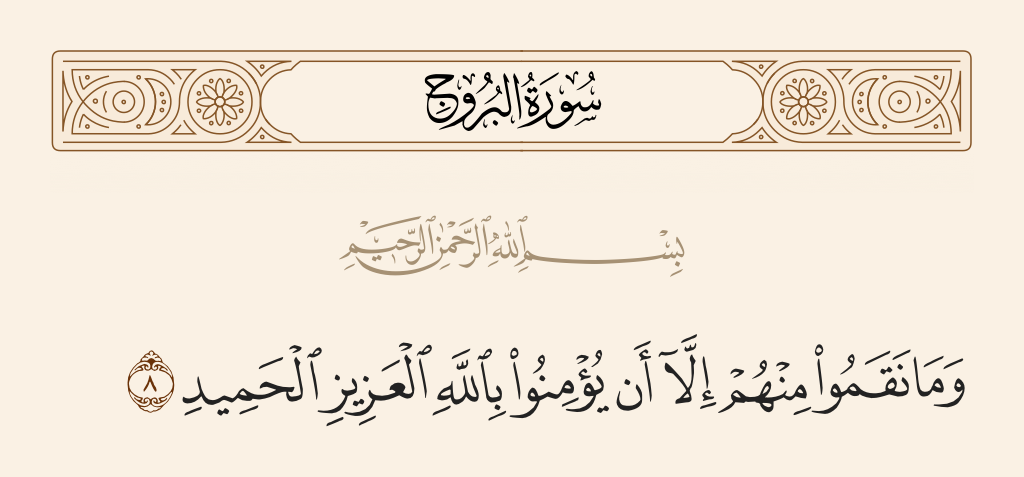 سُورَةُ البُرُوجِ
بِسْمِ ٱللَّهِ ٱلرَّحْمَٰنِ ٱلرَّحِيمِ
وَمَا نَقَمُوا۟ مِنْهُمْ إِلَّآ أَن يُؤْمِنُوا۟ بِٱللَّهِ ٱلْعَزِيزِ ٱلْحَمِيدِ ٨